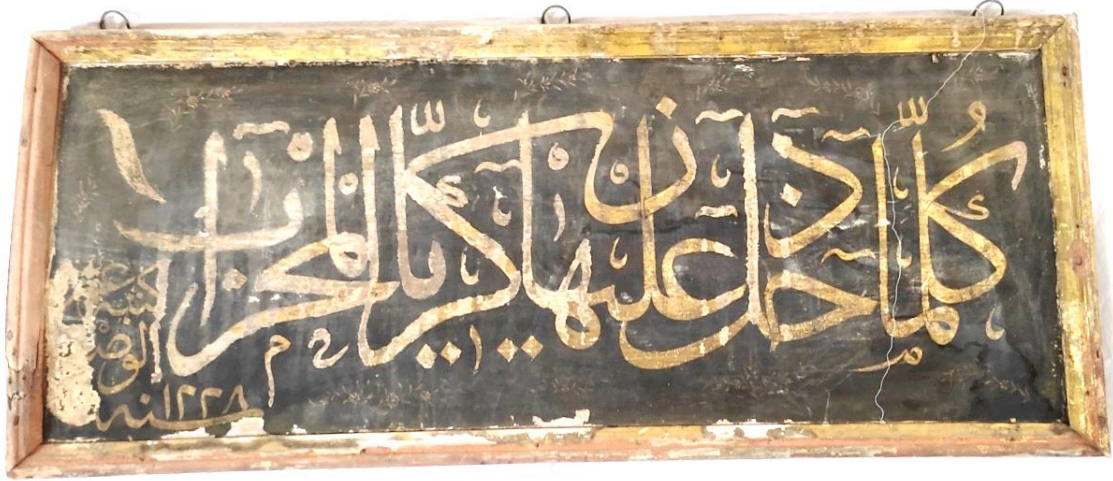 كُلَّمَا دَخَلَ عَلَيْهَا زَكَرِيَّا الْمِحْرَابَ
كتبه
سنه ١٢٢٨